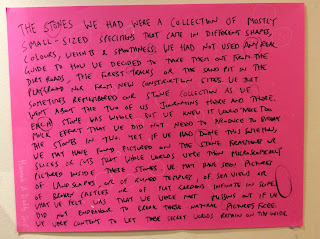 THE STONES WE HAD WERE A COLLECTION OF MOSTLY
SMALL-SIZED SPECIMENS THAT CAME IN DIFFERENT SHAPES,
COLOURS, WEIGHTS & SPONTANEITY. WE HAD NOT USED ANY REAL
GUIDE TO HOW WE DECIDED TO TAKE THEM OUT FROM THE
DIRT ROADS, THE FOREST-TRACKS OR THE SAND PIT IN THE
PLAYGROUND NOR FROM NEW CONSTRUCTION SITES. WE JUST
SOMETIMES REMEMBERED OUR STONE COLLECTION AS WE
WENT ABOUT THE TWO OF US JOURNEYING HERE AND THERE.
EACH STONE WAS WHOLE BUT WE KNEW IT WOULD TAKE TOO
MUCH EFFORT THAT WE DID NOT NEED TO PRODUCE TO BREAK
THE STONES IN TWO. YET IF WE HAD DONE THIS SURGERY,
WE MAY HAVE FOUND PICTURED ON THE STONE FRACTURES OR
SLICES OR CUTS THAT WHOLE WORLDS WERE THEN MICROSCOPICALLY
PICTURED INSIDE THESE STONES. WE MAY HAVE SEEN PICTURES
OF LANDSCAPES OR OF RUINED TEMPLES, OF SEA VIEWS OR
OF BROKEN CASTLES OR OF FLAT GARDENS INFINITE IN SCOPE.
WHAT WE FELT WAS THAT WE WERE NOT BUTTONS BUT IF WE
DID NOT ENDEAVOUR TO LEAVE THESE NATURAL PICTURES FREE.
WE WERE CONTENT TO LET THESE SECRET WORLDS REMAIN ON THE INSIDE.